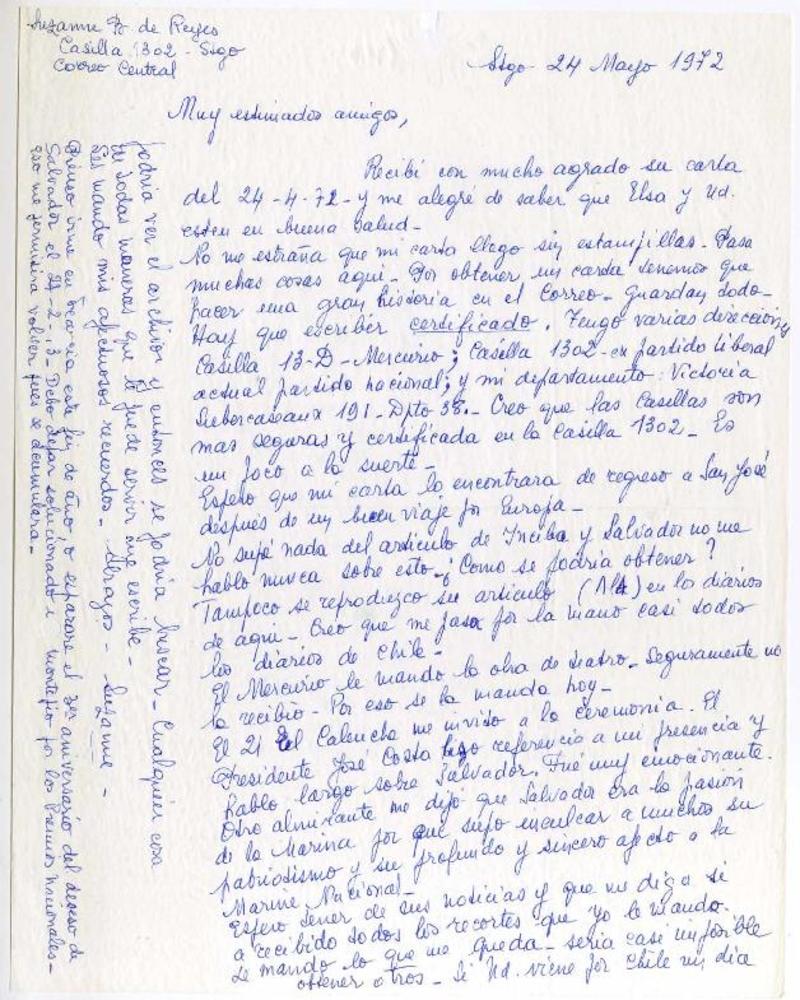 Suzanne B de Reyes
Casilla 1302 - Stgo
Correo Central
Stgo 24 Mayo 1972
Muy estimados amigos,
Recibí con mucho agrado su carta
del 24-4-72- y me alegré de saber que Elsa y Ud.
esten en buena salud-
No me estraña que mi carta llego sin estampillas - Pasa
muchas cosas aqui - Por obtener un carta tenemos que
hacer una gran historia en el Correo - guardan todo -
Hay que escribir certificado. Tengo varias direcciones
Casilla 13-D - Mercurio; Casilla 1302 - en partido Liberal
actual partido nacional; y mi departamento: Victoria
Subercaseaux 191 - Dpto 38. - Creo que las Casillas son
mas seguras y certificada en la Casilla 1302 - Es
un poco a la suerte -
Espero que mi carta lo encontrara de regreso a San José
después de un buen viaje por Europa -
No supé nada del articulo de Inciba y Salvador no me
hablo nunca sobre esto - ¿Como se podria obtener?
Tampoco se reprodujo su articulo (ALA) en los diarios
de aqui - Creo que me pasa por la mano casi todos
los diarios de Chile -
El Mercurio le mando la obra de teatro - Seguramente no
la recibió - Por eso se la manda hoy -
El 21 El Caleuche me invito a la ceremonia. El
Presidente José Costa hizo referencia a mi presencia y
hablo largo sobre Salvador. Fué muy emocionante.
Otro almirante me dijo que Salvador era la pasión
de la Marina por que supo inculcar a muchos su
patriotismo y su profundo y sincero afecto a la
Marine Nacional -
Espero tener de sus noticias y que me diga si
a recibido todos los recortes que yo le mando.
Le mando lo que me queda - seria casi imposible
obtener otros - Si Ud. viene por Chile un dia
podria ver el archivo y entonces se podria buscar - Cualquier cosa
en todas maneras que le puede servir me escribe -
Les mando mis afectuosos recuerdos - Abrazos - Suzanne -
Pienso irme en Francia este fin de año o esperare el 3er aniversario del deceso de
Salvador el 24-2-73 - Debo dejar solucionado e montepio por los Premios Nacionales -
eso me permitira volver pues se acumulara -